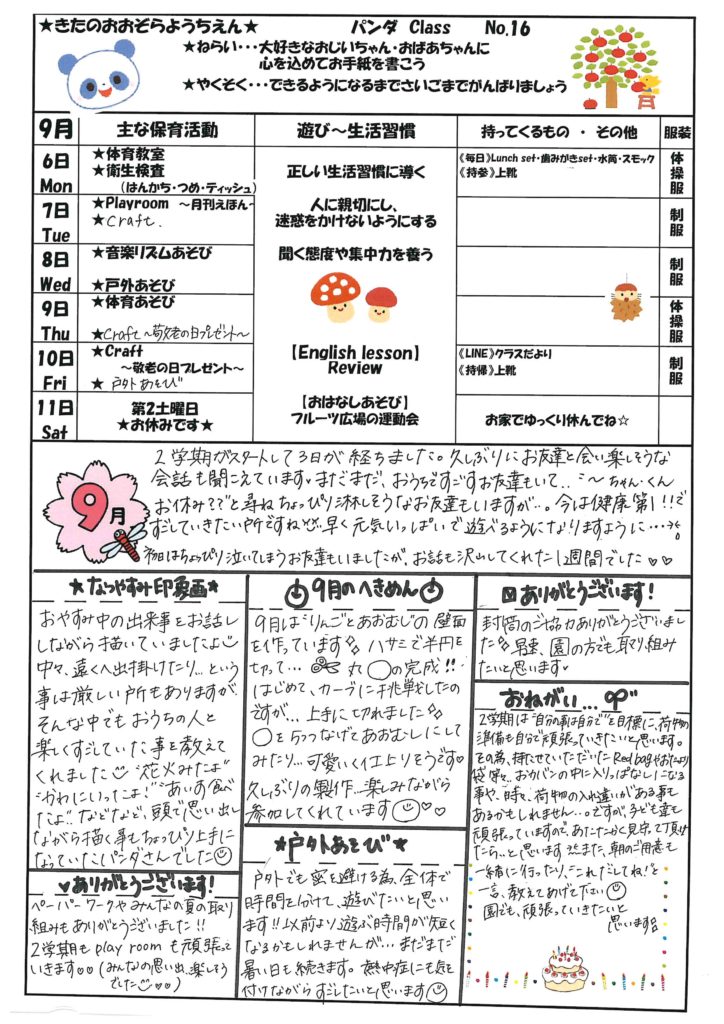 ★きたのおおぞらようちえん★ パンダ Class No.16
★ねらい・・・大好きなおじいちゃん・おばあちゃんに
心を込めてお手紙を書こう
★やくそく・・・できるようになるまでさいごまでがんばりましょう
9月 主な保育活動 遊び～生活習慣 持ってくるもの ・ その他 服装
6日 Mon
★体育教室
★衛生検査
(はんかち・つめ・ティッシュ)
正しい生活習慣に導く
《毎日》Lunch set・歯みがきset・水筒・スモック
《持参》上靴
体操服
7日 Tue
★Playroom ～月刊えほん～
★Craft.
人に親切にし、
迷惑をかけないようにする
制服
8日 Wed
★音楽リズムあそび
★戸外あそび
聞く態度や集中力を養う
制服
9日 Thu
★体育あそび
★Craft～敬老の日プレゼント～
体操服
10日 Fri
★Craft
～敬老の日プレゼント～
★ 戸外あそび
【English lesson】
Review
《LINE》クラスだより
《持帰》上靴
制服
11日 Sat
第2土曜日
★お休みです★
【おはなしあそび】
フルーツ広場の運動会
お家でゆっくり休んでね☆
9月
2学期がスタートして3日が経ちました。久しぶりにお友達と会い楽しそうな
会話も聞こえています♥まだまだ、おうちですごすお友達もいて‥"～ちゃん・くん
お休み??"と尋ねちょっぴり淋しそうなお友達もいますが‥。今は健康第1!!で
すごしていきたい所ですね 早く元気いっぱいで遊べるようになりますように…
初はちょっぴり泣いてしまうお友達もいましたが、お話も沢山してくれた1週間でした♡♡
★なつやすみ印象画★
おやすみ中の出来事をお話し
しながら描いていましたよ
中々、遠くへ出掛けたり…という
事は厳しい所もありますが
そんな中でもおうちの人と
楽しくすごしていた事を教えて
くれました "花火みたよ"
"かわにいったよ!" "あいす食べ
たよ"などなど、頭で思い出し
ながら描く事もちょっぴり上手に
なっていたパンダさんでした
♥ありがとうございます!
ペーパーワークやみんなの夏の取り
組みもありがとうございました!!
2学期もplay roomも頑張って
いきます♡♡(みんなの思い出、楽しそう
でした♡♡)
9月のへきめん
9月は"りんごとあおむし"の壁面
を作っています ハサミで半円を
切って… 丸○の完成!!
はじめて、カーブに挑戦したの
ですが…上手に切れました
○を5つつなげてあおむしにして
みたり…可愛いく仕上りそうです
久しぶりの製作…楽しみながら
参加してくれています ♡♡
★戸外あそび★
戸外でも密を避ける為、全体で
時間を分けて、遊びたいと思い
ます!!以前より遊ぶ時間が短く
なるかもしれませんが…まだまだ
暑い日も続きます。熱中症にも気を
付けながらすごしたいと思います
ありがとうございます!
封筒のご協力ありがとうございまし
た 早速、園の方でも取り組み
たいと思います♥
おねがい…
2学期は"自分の事は自分で"を目標に、荷物の
準備も自分で頑張っていきたいと思います。
その為、持たせていただいたRed bagやおたより
袋等を、おカバンの中に入りっぱなしになる
事や、時々、荷物の入れ違いがある事も
あるかもしれません‥。ですが、子ども達も
頑張っていますので、あたたかく見守って頂け
たら‥と思います また、朝のご用意も
一緒に行ったり"これだしてね!"と
一言、教えてあげてください
園でも、頑張っていきたいと
思います